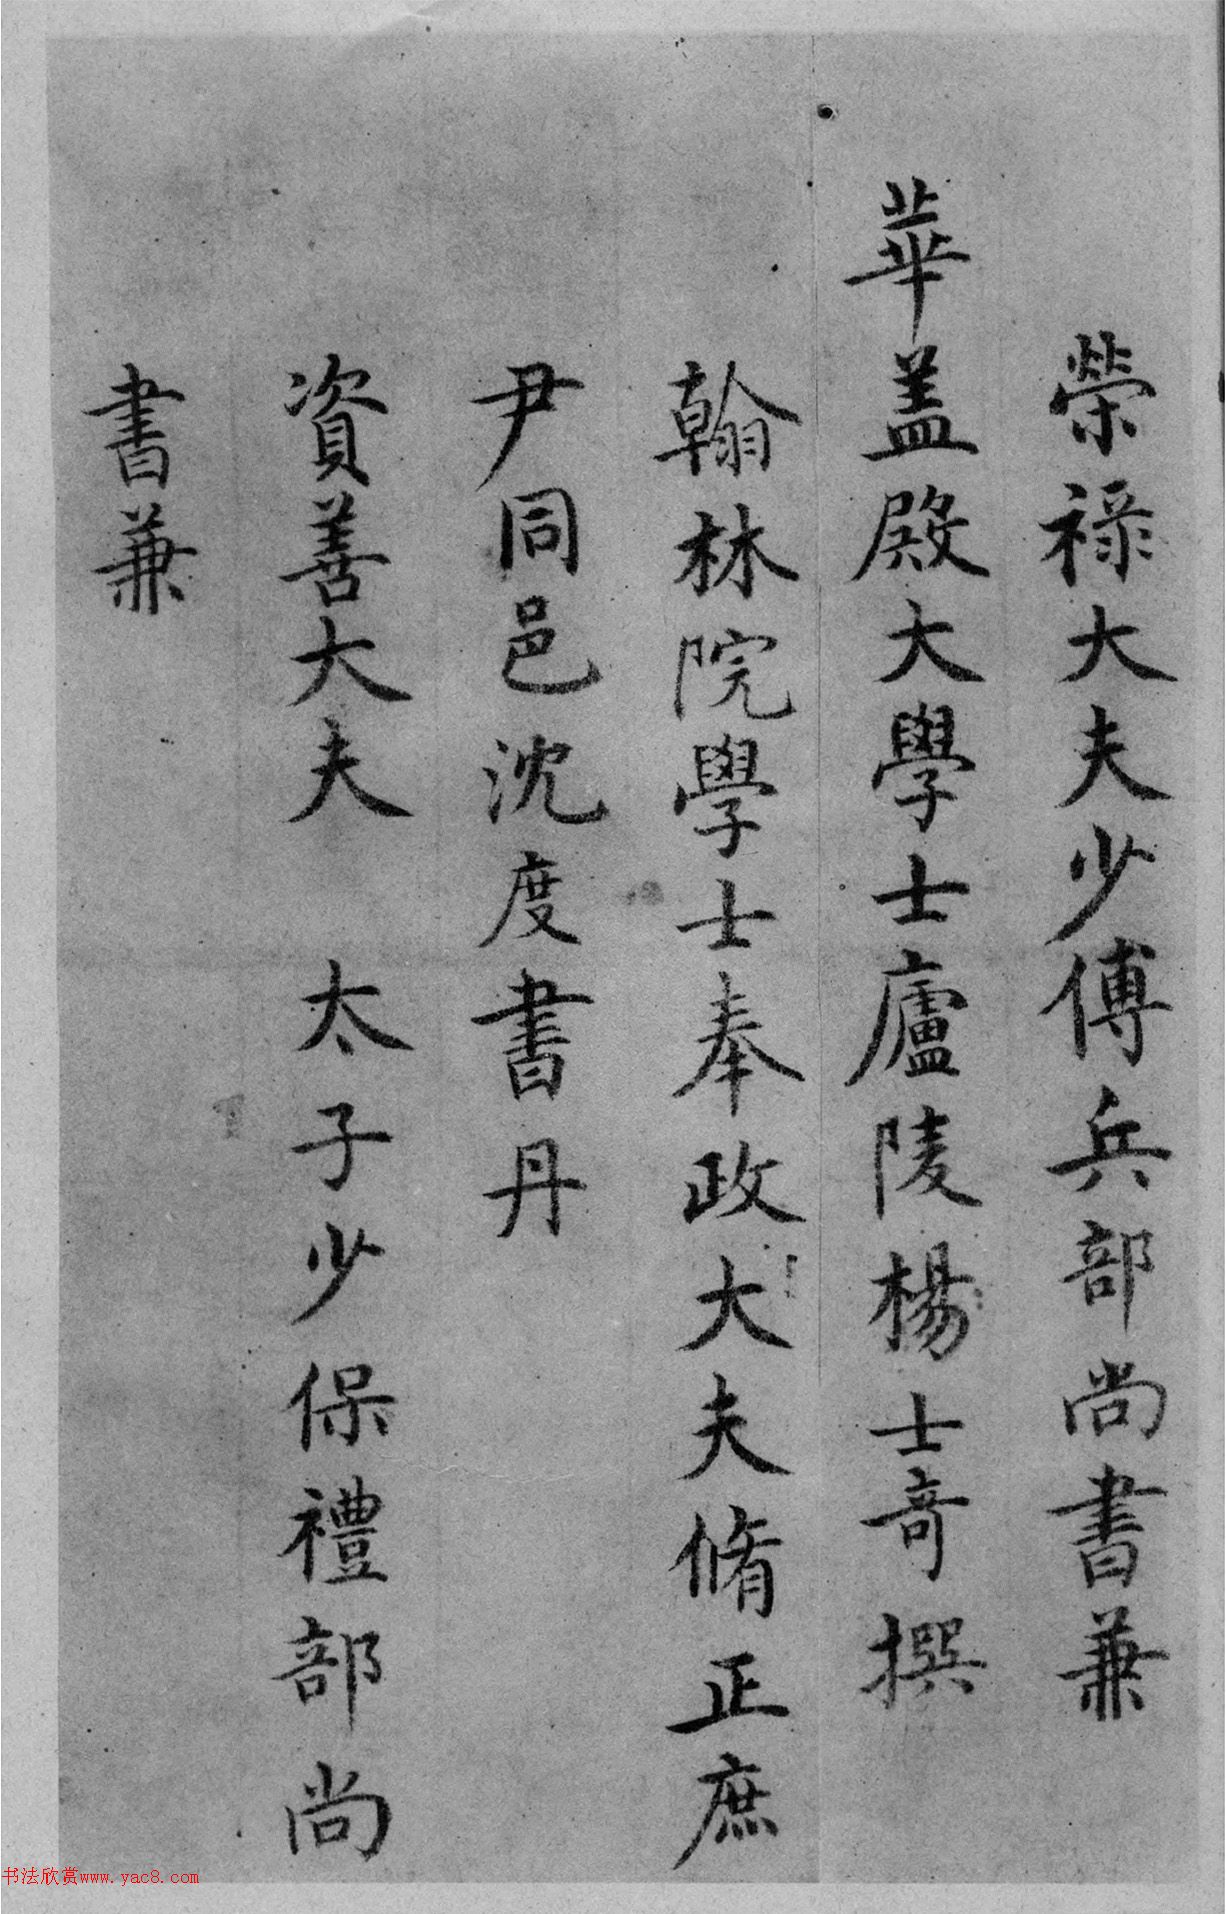 榮祿大夫少傅兵部尚書兼
華盖殿大學士廬陵楊士竒撰
翰林院學士奉政大夫脩正庶
尹同邑沈度書丹
資善大夫 太子少保禮部尚
書兼
书法欣赏www.yac8.com